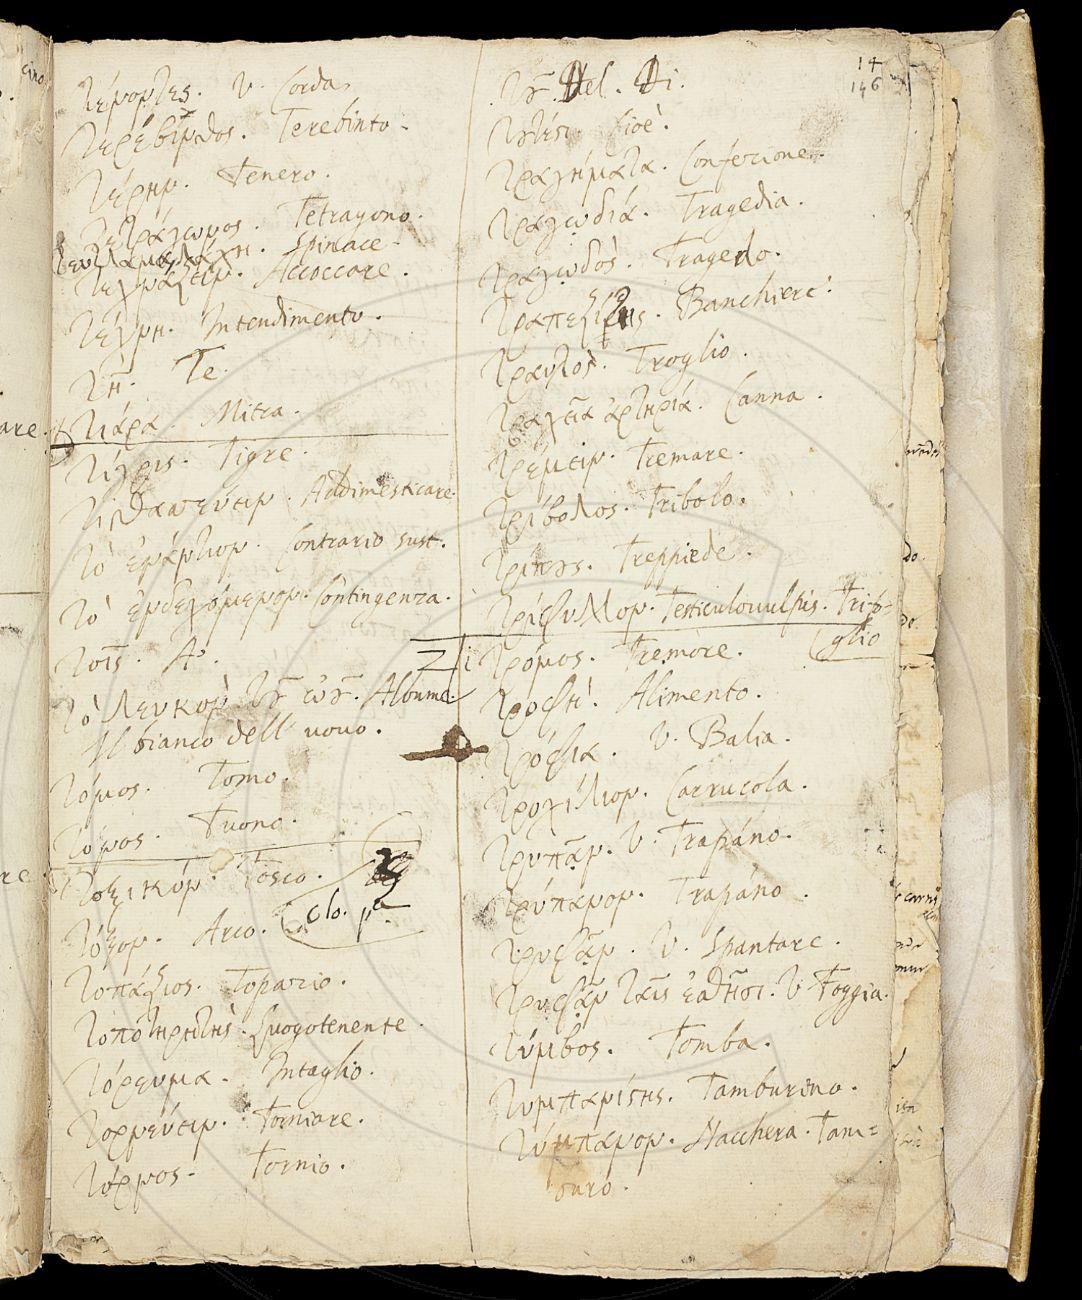 14
146
τένοντες. V. Corda.
τερέβινθος. Terebinto.
τέρην. Tenero.
τετράγωνος. Tetragono.
Spinace.
Accoccare.
τέχνη. Intendimento.
τῇ. Te.
τιάρα. Mitra.
τίγρις. Tigre.
τιθασεύειν. Addimesticare.
τὸ ἐνάντιον. Contrario sust.
τὸ ἐνδεχόμενον. Contingenza.
τοῖς. A'.
τὸ λευκὸν τοῦ ὠοῦ. Albume.
Il bianco dell' uouo.
τόμος. Tomo.
τόνος. Tuono.
τοξικόν. Tosco.
τόξον. Arco.
τοπάζιος. Topazio.
τοποτηρητὴς. Luogotenente.
τόρευμα. Intaglio.
τορνεύειν. Torniare.
τόρνος. Tornio.
τοῦ. Del. Di.
τουτέστι. Cioè.
τραγήματα. Confezione.
τραγωδιά. Tragedia.
τραγωδὸς. Tragedo.
τραπεζίτης. Banchiere.
τραυλὸς. Troglio.
τραχεῖα ἀρτηριά. Canna.
τρέμειν. Tremare.
τρίβολος. Tribolo.
τρίπους. Treppiede.
τρίφυλλον. Testiculouulpis. Trifo-
glio
τρόμος. Tremore.
τροφὴ. Alimento.
τρόφια. V. Balia.
τροχίλιον. Carrucola.
τρυπᾶν. V. Trapáno.
τρύπανον. Trapáno.
τρυφᾶν. V. Spantare.
τρυφᾶν ταῖς ἐσθῆσι. V. Foggia.
τύμβος. Tomba.
τυμπανίστης. Tamburino.
τύμπανον. Nacchera. Tam=
buro.